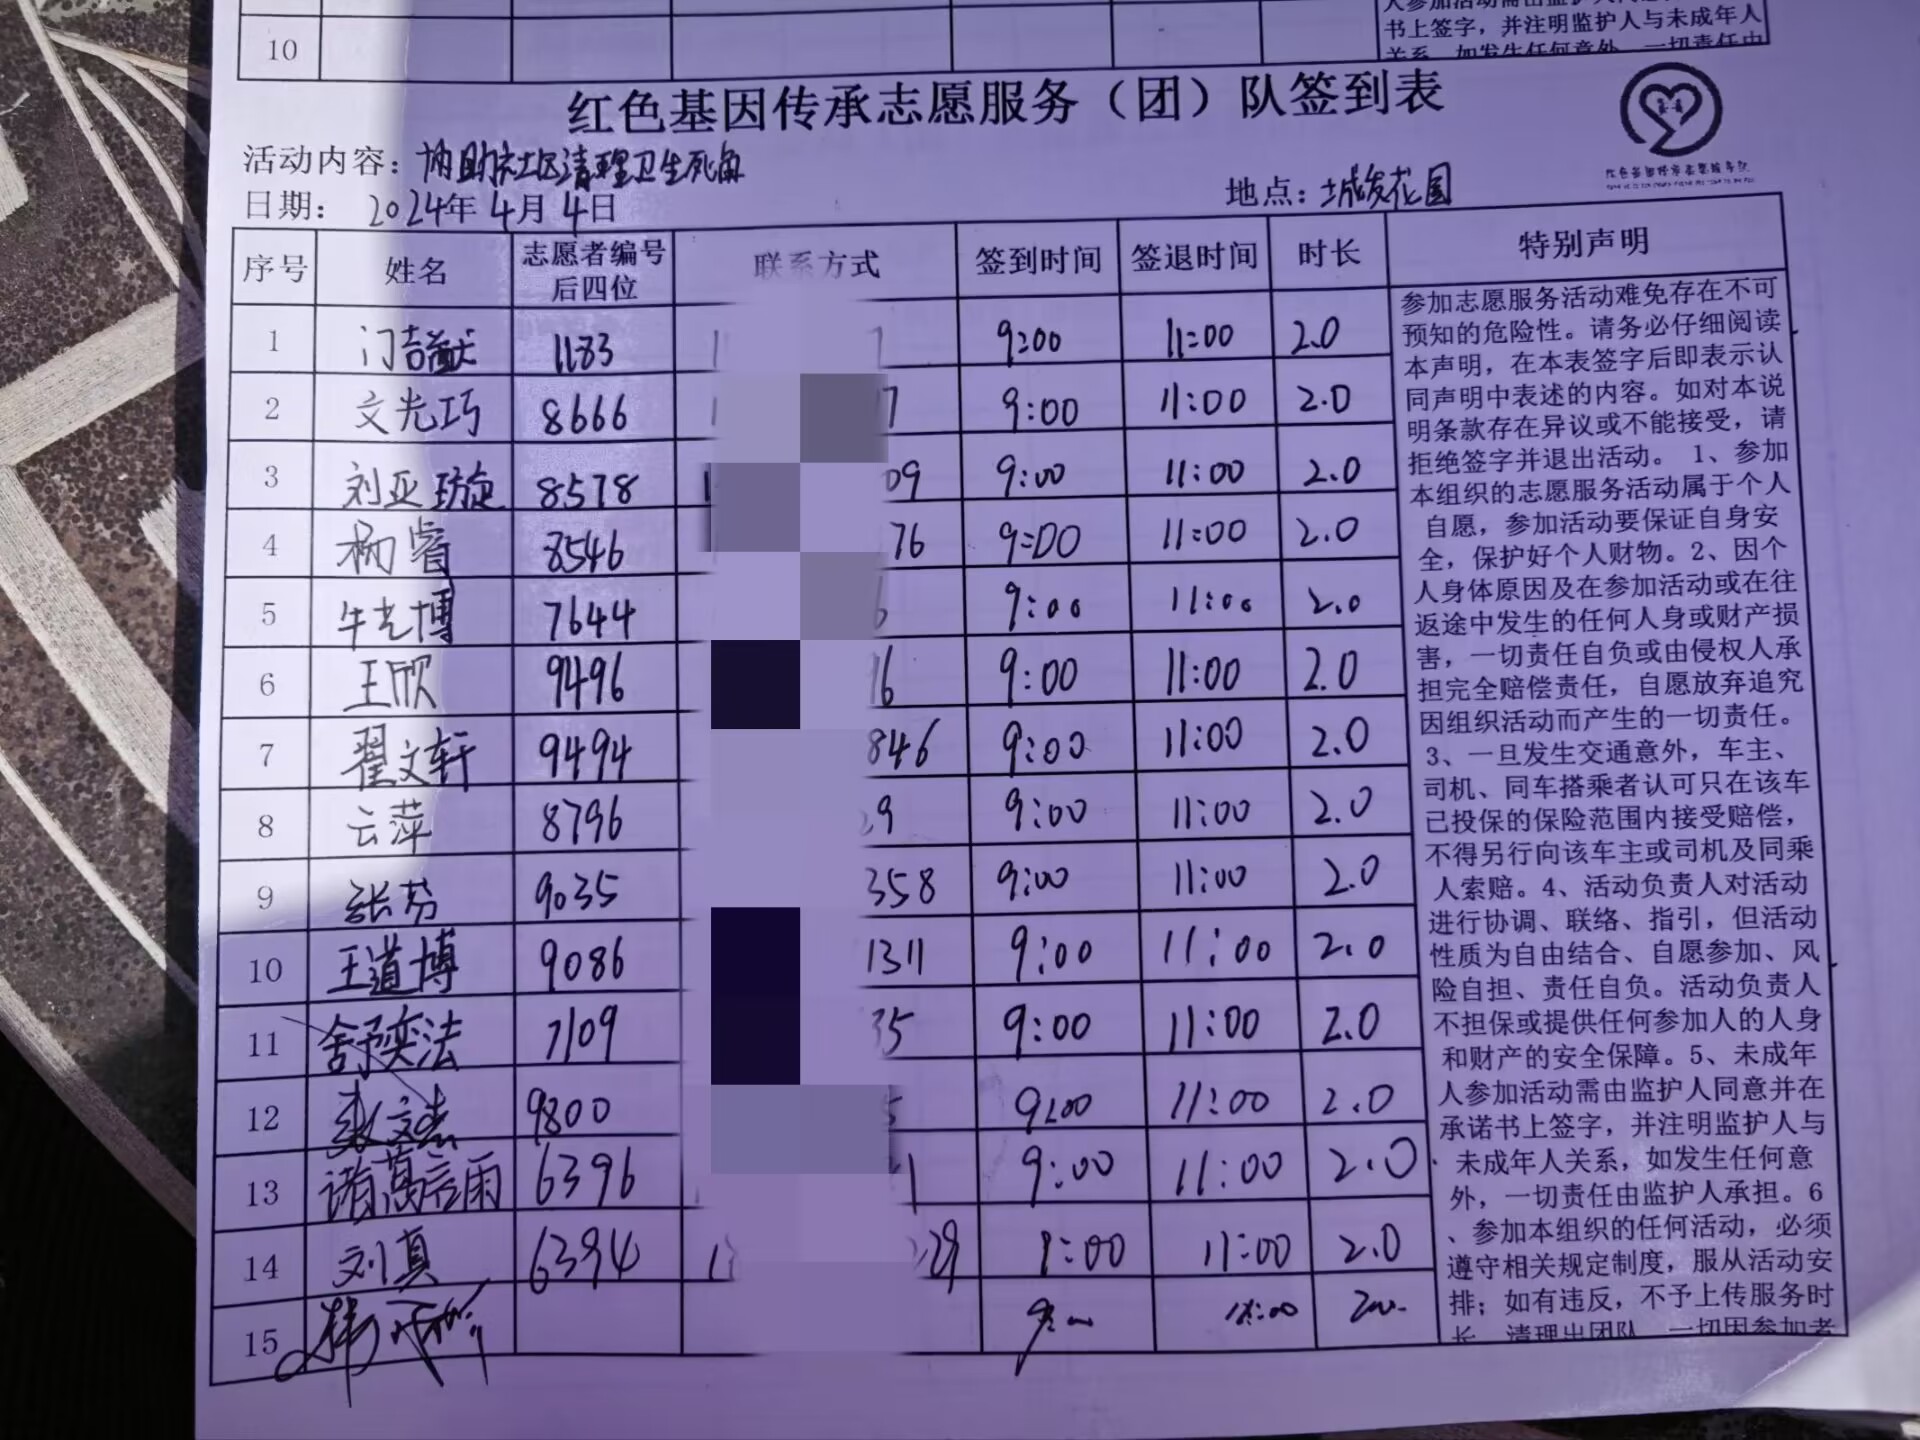 人参加活动需由监护人同意并在
书上签字，并注明监护人与未成年人
关系，如发生任何意外，一切责任由
10
红色基因传承志愿服务（团）队签到表
活动内容：协助社区清理卫生死角
日期： 2024年4月4日 地点：城发花园
序号 姓名 志愿者编号后四位 联系方式 签到时间 签退时间 时长 特别声明
1 门喆猷 1183 1 7 9:00 11:00 2.0
2 文光巧 8666 1 7 9:00 11:00 2.0
3 刘亚璇 8578 1 09 9:00 11:00 2.0
4 杨睿 8546 76 9:00 11:00 2.0
5 牛志博 7644 6 9:00 11:00 2.0
6 王欣 9496 16 9:00 11:00 2.0
7 翟文轩 9494 846 9:00 11:00 2.0
8 云萍 8796 29 9:00 11:00 2.0
9 张芬 9035 358 9:00 11:00 2.0
10 王道博 9086 1311 9:00 11:00 2.0
11 舒奕法 7109 35 9:00 11:00 2.0
12 文志 9800 5 9:00 11:00 2.0
13 诸葛宸雨 6396 1 9:00 11:00 2.0
14 刘真 6394 1 29 9:00 11:00 2.0
15
参加志愿服务活动难免存在不可
预知的危险性。请务必仔细阅读
本声明，在本表签字后即表示认
同声明中表述的内容。如对本说
明条款存在异议或不能接受，请
拒绝签字并退出活动。 1、参加
本组织的志愿服务活动属于个人
自愿，参加活动要保证自身安
全，保护好个人财物。2、因个
人身体原因及在参加活动或在往
返途中发生的任何人身或财产损
害，一切责任自负或由侵权人承
担完全赔偿责任，自愿放弃追究
因组织活动而产生的一切责任。
3、一旦发生交通意外，车主、
司机、同车搭乘者认可只在该车
已投保的保险范围内接受赔偿，
不得另行向该车主或司机及同乘
人索赔。4、活动负责人对活动
进行协调、联络、指引，但活动
性质为自由结合、自愿参加、风
险自担、责任自负。活动负责人
不担保或提供任何参加人的人身
和财产的安全保障。5、未成年
人参加活动需由监护人同意并在
承诺书上签字，并注明监护人与
未成年人关系，如发生任何意
外，一切责任由监护人承担。6
、参加本组织的任何活动，必须
遵守相关规定制度，服从活动安
排；如有违反，不予上传服务时
长，清理出团队，一切因参加者